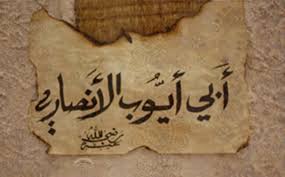 أَبي أَيُّوب الأَنصاري
رضي الله عنه